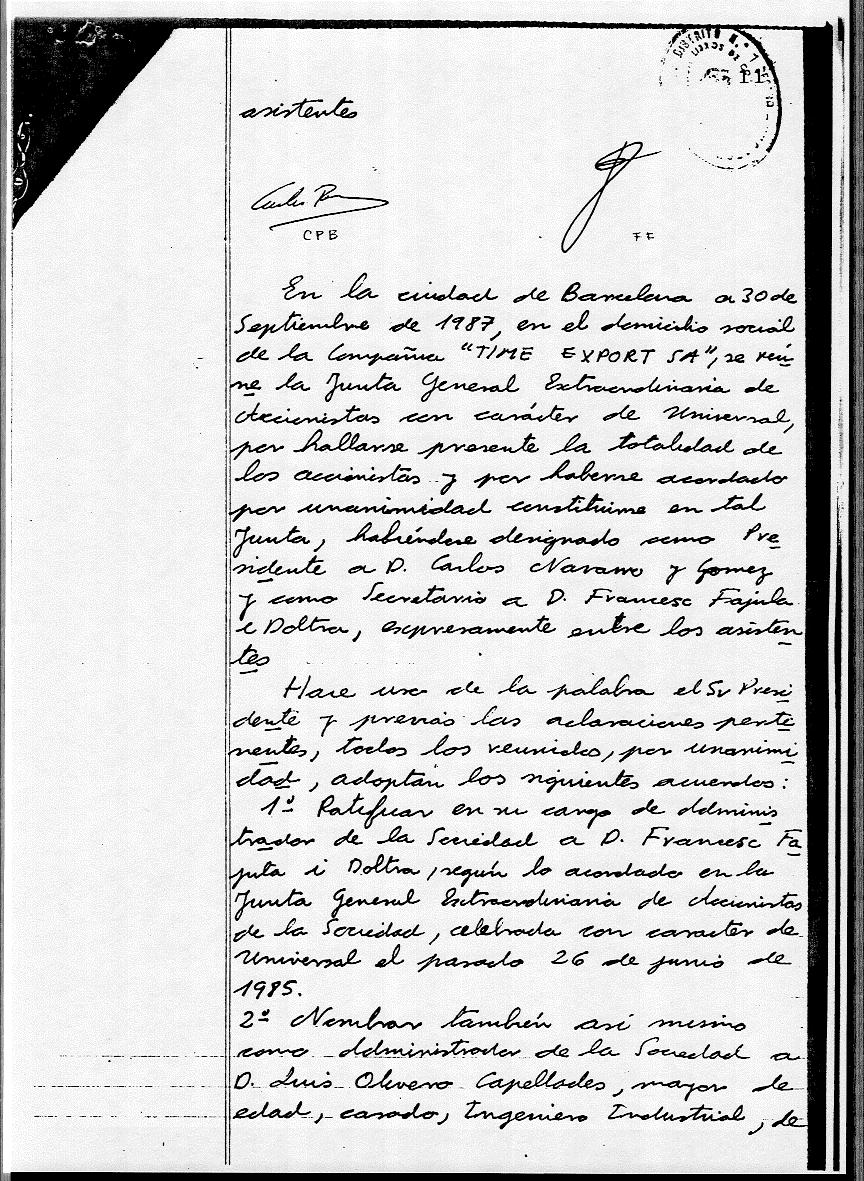 DISTRITO N.
LIBROS DE
11
asistentes
Carlos
CPB
FF
En la ciudad de Barcelona a 30 de
Septiembre de 1987, en el domicilio social
de la Compañia "TIME EXPORT SA", se reú
ne la Junta General Extraordinaria de
Accionistas con carácter de Universal,
por hallarse presente la totalidad de
los accionistas y por haberse acordado
por unanimidad constituirse en tal
Junta, habiéndose designado como Pre
sidente a D. Carlos Navarro y Gomez
y como Secretario a D. Francesc Fajula
i Doltra, expresamente entre los asisten
tes
Hace uso de la palabra el Sr Presi
dente y previas las aclaraciones perti
nentes, todos los reunidos, por unanimi
dad, adoptan los siguientes acuerdos:
1º Ratificar en su cargo de Adminis
trador de la Sociedad a D. Francesc Fa
jula i Doltra, según lo acordado en la
Junta General Extraordinaria de Accionistas
de la Sociedad, celebrada con caracter de
Universal el pasado 26 de junio de
1985.
2º Nombrar también asi mismo
como Administrador de la Sociedad a
D. Luis Olivero Capellades, mayor de
edad, casado, Ingeniero Industrial, de